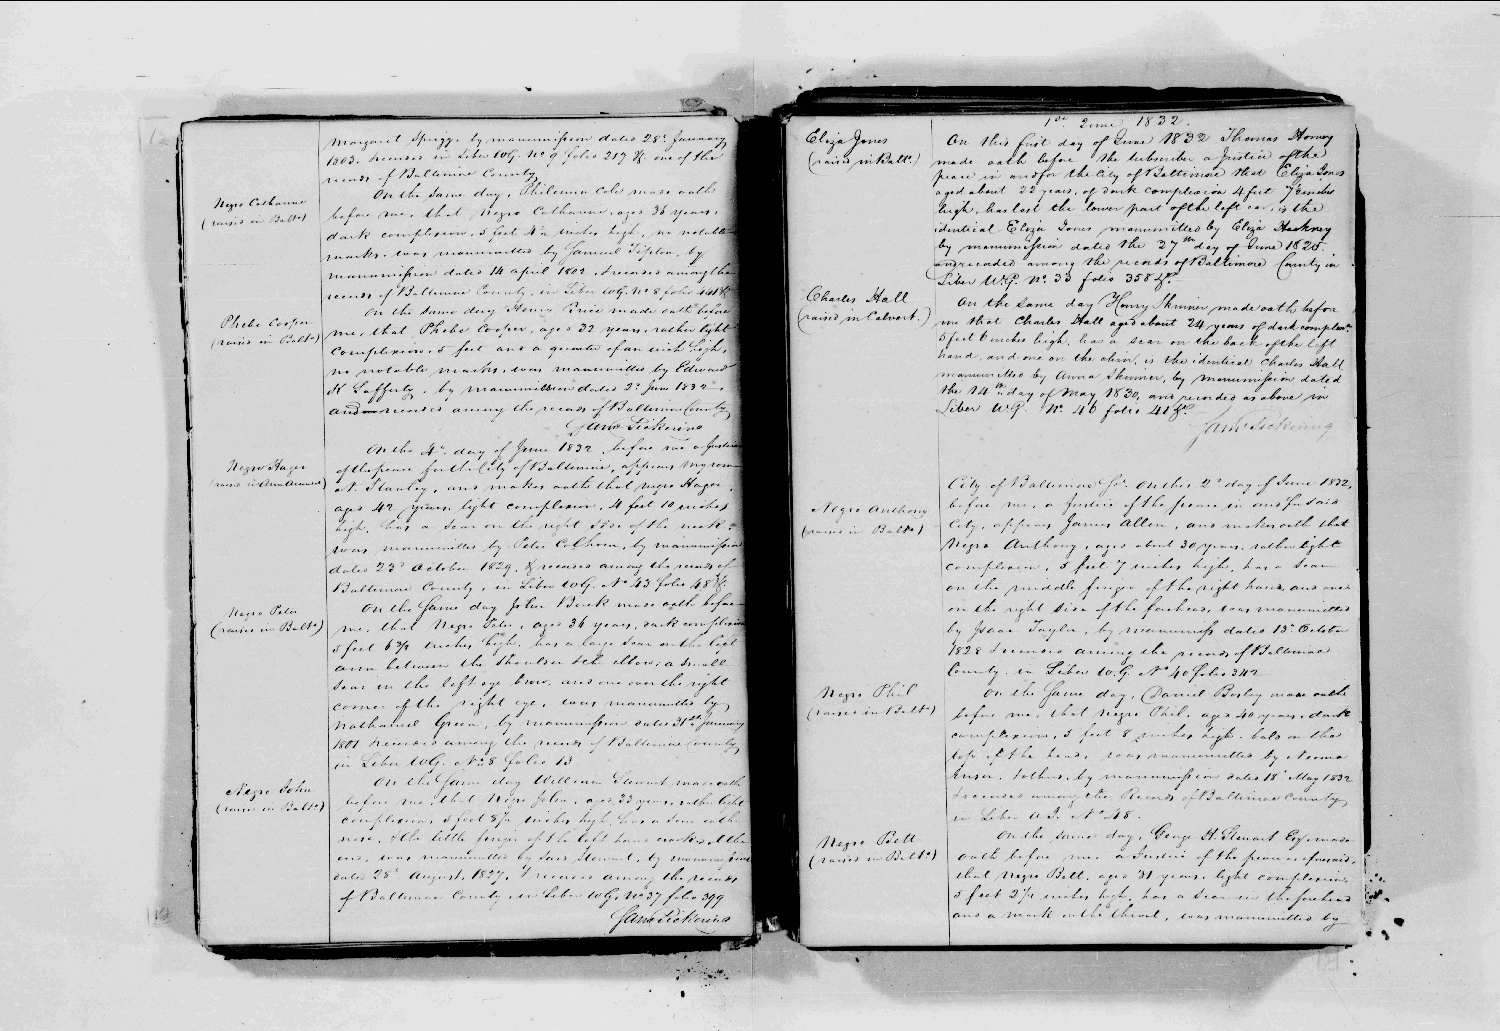 Margaret Sprigg, by manumission dated 28th January
1803, & recorded in Liber W.G. No 9 folio 217 &c. one of the
records of Baltimore County
Negro Catharine
(raised in Balto)
On the same day, Philemon Cole made oath
before me, that Negro Catharine, aged 36 years,
dark complexion, 5 feet inches high, no notable
marks, was manumitted by Samuel Tipton, by
manumission dated 14 april 1802, & recorded among the
records of Baltimore County, in Liber W.G. No 8 folio
Phebe Cooper
(raised in Balto)
On the same day Henry Price made oath before
me, that Phebe Cooper, aged 32 years, rather light
complexion, 5 feet and a quarter of an inch high,
no notable marks, was manumitted by Edward
K Lafferty, by manumission dated 2d June 1832
and recorded among the records of Baltimore County
James Pickering
Negro Hager
(raised in Ann Arundel)
On the 4th day of June 1832, before me a Justice
of the peace for the City of Baltimore, appears
N. Stanley, and makes oath that negro Hager,
aged 42 years, light complexion, 4 feet 10 inches
high, has a scar on the right side of the neck &
was manumitted by Peter Colhoun, by manumission
dated 23d October 1829, & recorded among the records of
Baltimore County, in Liber W.G. No 43 folio 48 &c.
Negro Peter
(raised in Balto)
On the same day John Bunk made oath before
me, that Negro Peter, aged 36 years, dark complexion
5 feet 6 3/4 inches high, has a large scar on the left
arm between the shoulder & the elbow, a small
scar in the left eye brow, and one over the right
corner of the right eye, was manumitted by
Nathaniel Green, by manumission dated 31st January
1801 & recorded among the records of Baltimore County
in Liber W.G. No 8 folio 13
Negro John
(raised in Balto)
On the same day William Stewart made oath
before me, that Negro John, aged 33 years, rather light
complexion, 5 feet 8 1/2 inches high, has a scar on the
nose, & the little finger of the left hand crooked at the
end, was manumitted by said Stewart, by manumission
dated 28th August, 1827, & recorded among the records
of Baltimore County, in Liber W.G. No 37 folio 399
James Pickering
1st June 1832.
Eliza Jones
(raised in Balto.)
On this first day of June 1832 Thomas Harvey
made oath before the subscriber a Justice of the
peace in and for the City of Baltimore that Eliza Jones
aged about 22 years, of dark complexion 4 feet inches
high, has lost the lower part of the left ear, is the
identical Eliza Jones manumitted by Eliza Hackney
by manumission dated the 27th day of June 1825.
and recorded among the records of Baltimore County in
Liber W.G. No. 33 folio 358 &c.
Charles Hall
(raised in Calvert.)
On the same day Henry Skinner made oath before
me that Charles Hall aged about 24 years of dark complexn.
5 feet 6 inches high, has a scar on the back of the left
hand, and one on the chin, is the identical Charles Hall
manumitted by Anna Skinner, by manumission dated
the 14th day of May 1830, and recorded as above in
Liber W.G. No. 46 folio 41 &c.
James Pickering
Negro Anthony
(raised in Balto)
City of Baltimore Ss. On this 2d day of June 1832,
before me, a Justice of the peace in and for said
City, appears James Allen, and makes oath that
Negro Anthony, aged about 30 years, rather light
complexion, 5 feet 7 inches high, has a scar
on the middle finger of the right hand, and one
on the right side of the forehead, was manumitted
by Isaac Taylor, by manumiss dated 15th October
1828 & recorded among the records of Baltimore
County in Liber W.G. No 40 folio 342
Negro Phil
(raised in Balto)
On the same day, Daniel Bosley made oath
before me, that negro Phil, aged 40 years, dark
complexion, 5 feet 8 inches high, bald on the
top of the head, was manumitted by
& others, by manumission dated 18th May 1832
& recorded among the Records of Baltimore County
in Liber A.I. No 48.
Negro Bett
(raised in Balto)
On the same day, George H. Stewart Esq made
oath before me, a Justice of the peace aforesaid,
that Negro Bett, aged 31 years, light complexion,
5 feet 2 1/2 inches high, has a scar in the forehead
and a mark on the throat, was manumitted by